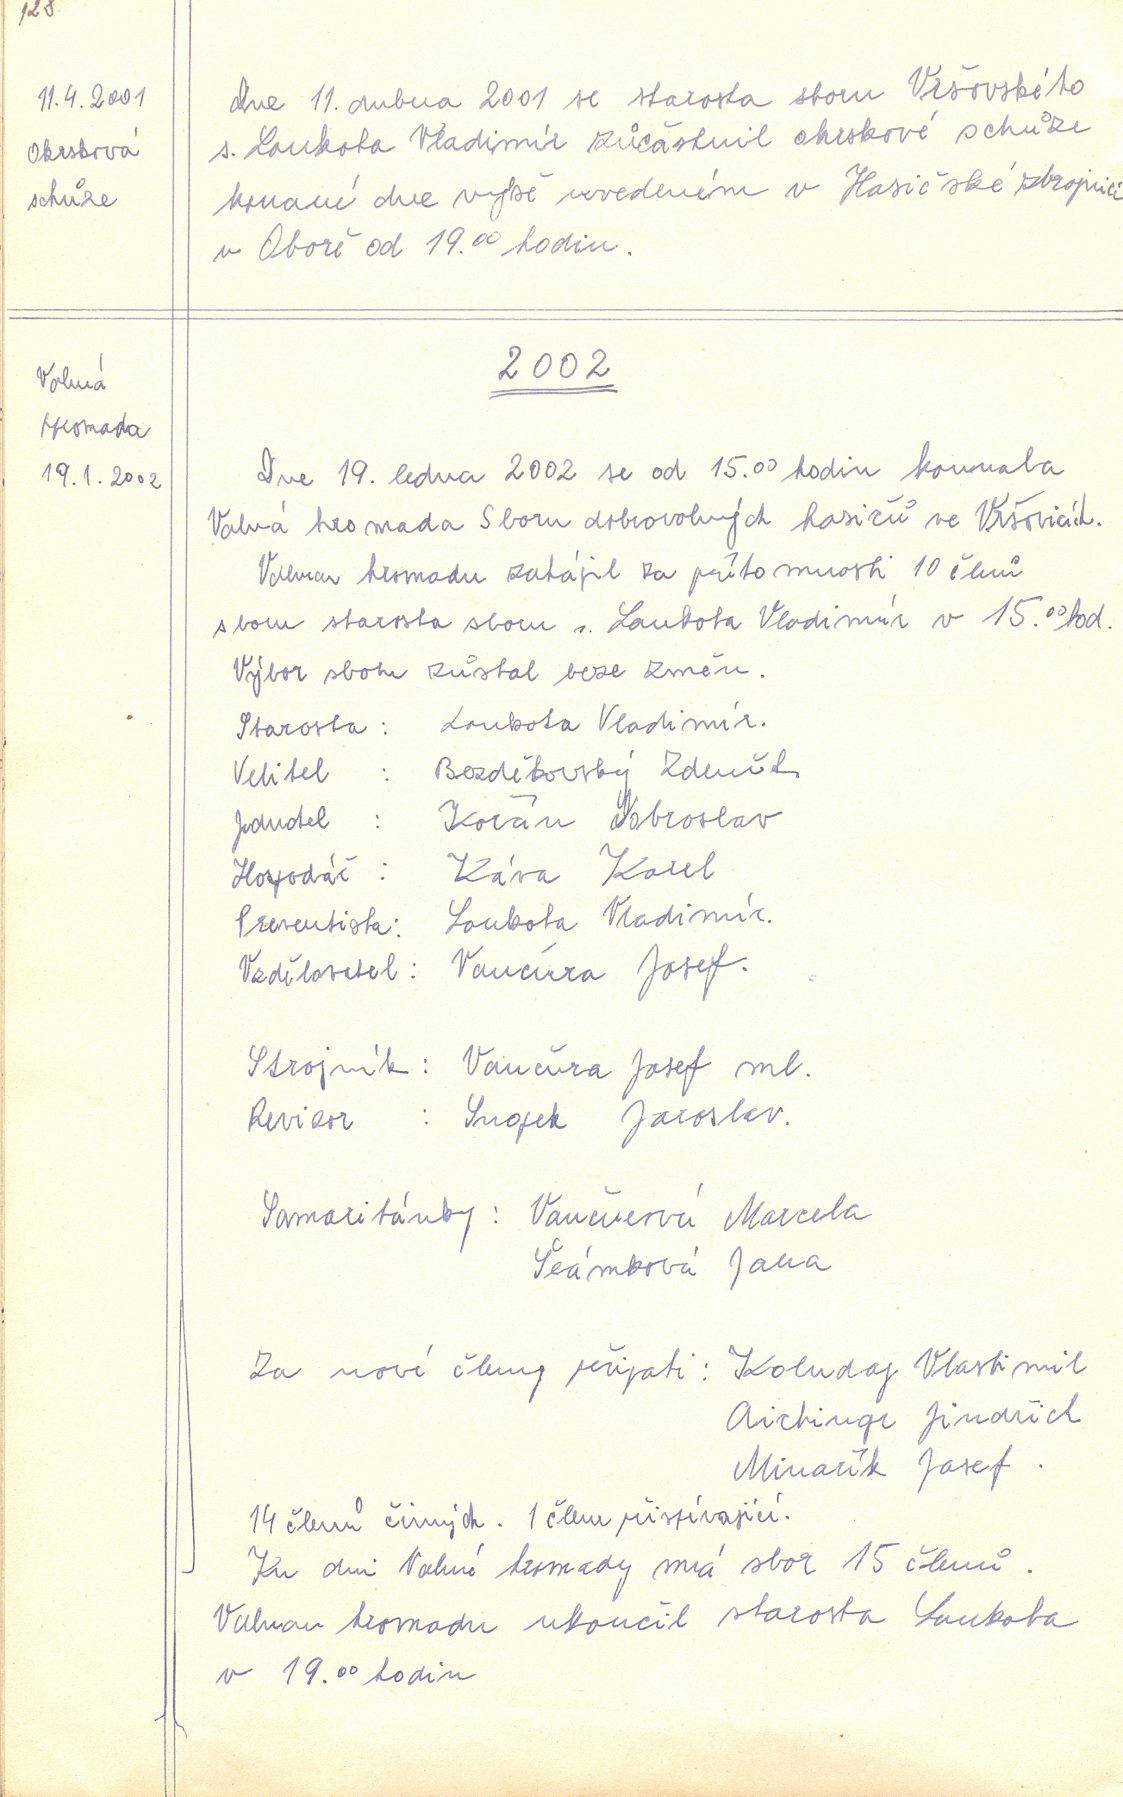 128
11.4.2001
Okrsková
schůze
Dne 11. dubna 2001 se starosta sboru Vršovského
s. Loukota Vladimír zůčastnil okrskové schůze
konané dne výše uvedeném v Hasičské zbrojnici
v Oboře od 19.00 hodin.
2002
Valná
hromada
19.1.2002
Dne 19. ledna 2002 se od 15.00 hodin konnala
Valná hromada Sboru dobrovolných hasičů ve Vršovicích.
Valnou hromadu zahájil za přítomnosti 10 členů
sboru starosta sboru s. Loukota Vladimír v 15.00 hod.
Výbor sboru zůstal beze změn.
Starosta : Loukota Vladimír.
Velitel : Bezděkovský Zdeněk
Jednatel : Kořán Dobroslav
Hospodář : Káva Karel
Preventista : Loukota Vladimír.
Vzdělavatel : Vančura Josef.
Strojník : Vančura Josef ml.
Revizor : Jaroslav.
Samaritánky : Vančurová Marcela
Šrámková Jana
Za nové členy přijati : Koludaj Vlastimil
Aichingr Jindřich
Minařík Josef .
14 členů činných . 1 člen přispívající.
Ku dni Valné hromady má sbor 15 členů .
Valnou hromadu ukončil starosta Loukota
v 19.00 hodin